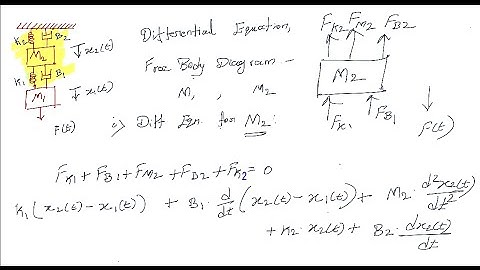 K2 B2
M2 ↓x2(t)
K1 B1
M1 ↓x1(t)
F(t)
Differential Equation,
Free Body Diagram -
M1 M2
i) Diff Eqn. for M2:
FK2 FM2 FB2
M2
FK1 FB1 F(t)
FK1 + FB1 + FM2 + FB2 + FK2 = 0
K1(x2(t) - x1(t)) + B1 · d/dt (x2(t) - x1(t)) + M2 · d²x2(t)/dt²
+ K2 · x2(t) + B2 · dx2(t)/dt